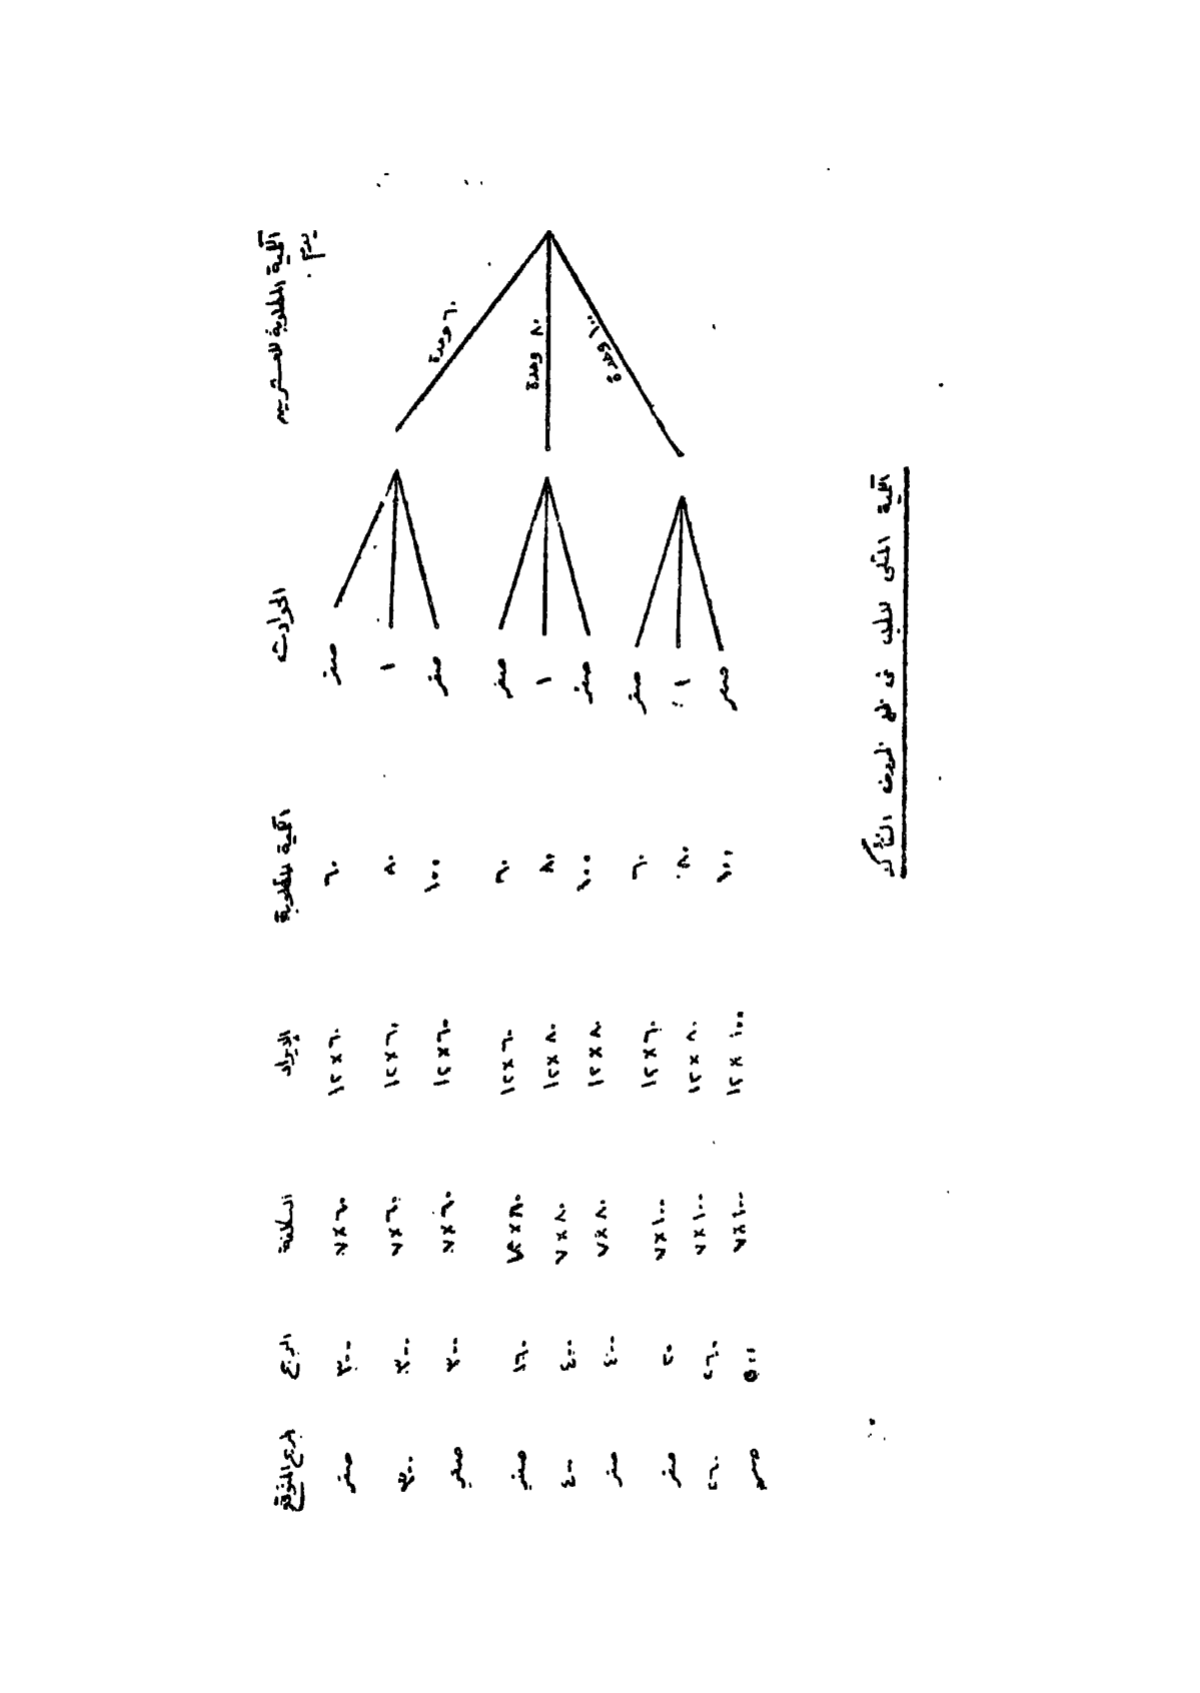 الكمية المطلوبة الحوادث الكمية المطلوبة الإيراد التكلفة الربح الربح المتوقع
يوم .
صفر ٦٠ ١٢ × ٦٠ ٧ × ٦٠ ٣٠٠ صفر
١ ٨٠ ١٢ × ٦٠ ٧ × ٦٠ ٣٠٠ ٣٠٠
٦٠ وحدة
صفر ١٠٠ ١٢ × ٦٠ ٧ × ٦٠ ٣٠٠ صفر
صفر ٦٠ ١٢ × ٦٠ ٧ × ٨٠ ١٦٠ صفر
٨٠ وحدة
١ ٨٠ ١٢ × ٨٠ ٧ × ٨٠ ٤٠٠ ٤٠٠
صفر ١٠٠ ١٢ × ٨٠ ٧ × ٨٠ ٤٠٠ صفر
١٠٠ وحدة
صفر ٦٠ ١٢ × ٦٠ ٧ × ١٠٠ ٢٠ صفر
١ ٨٠ ١٢ × ٨٠ ٧ × ١٠٠ ٢٦٠ ٢٦٠
صفر ١٠٠ ١٢ × ١٠٠ ٧ × ١٠٠ ٥٠٠ صفر
الكمية المثلى للطلب في ظل ظروف التأكد